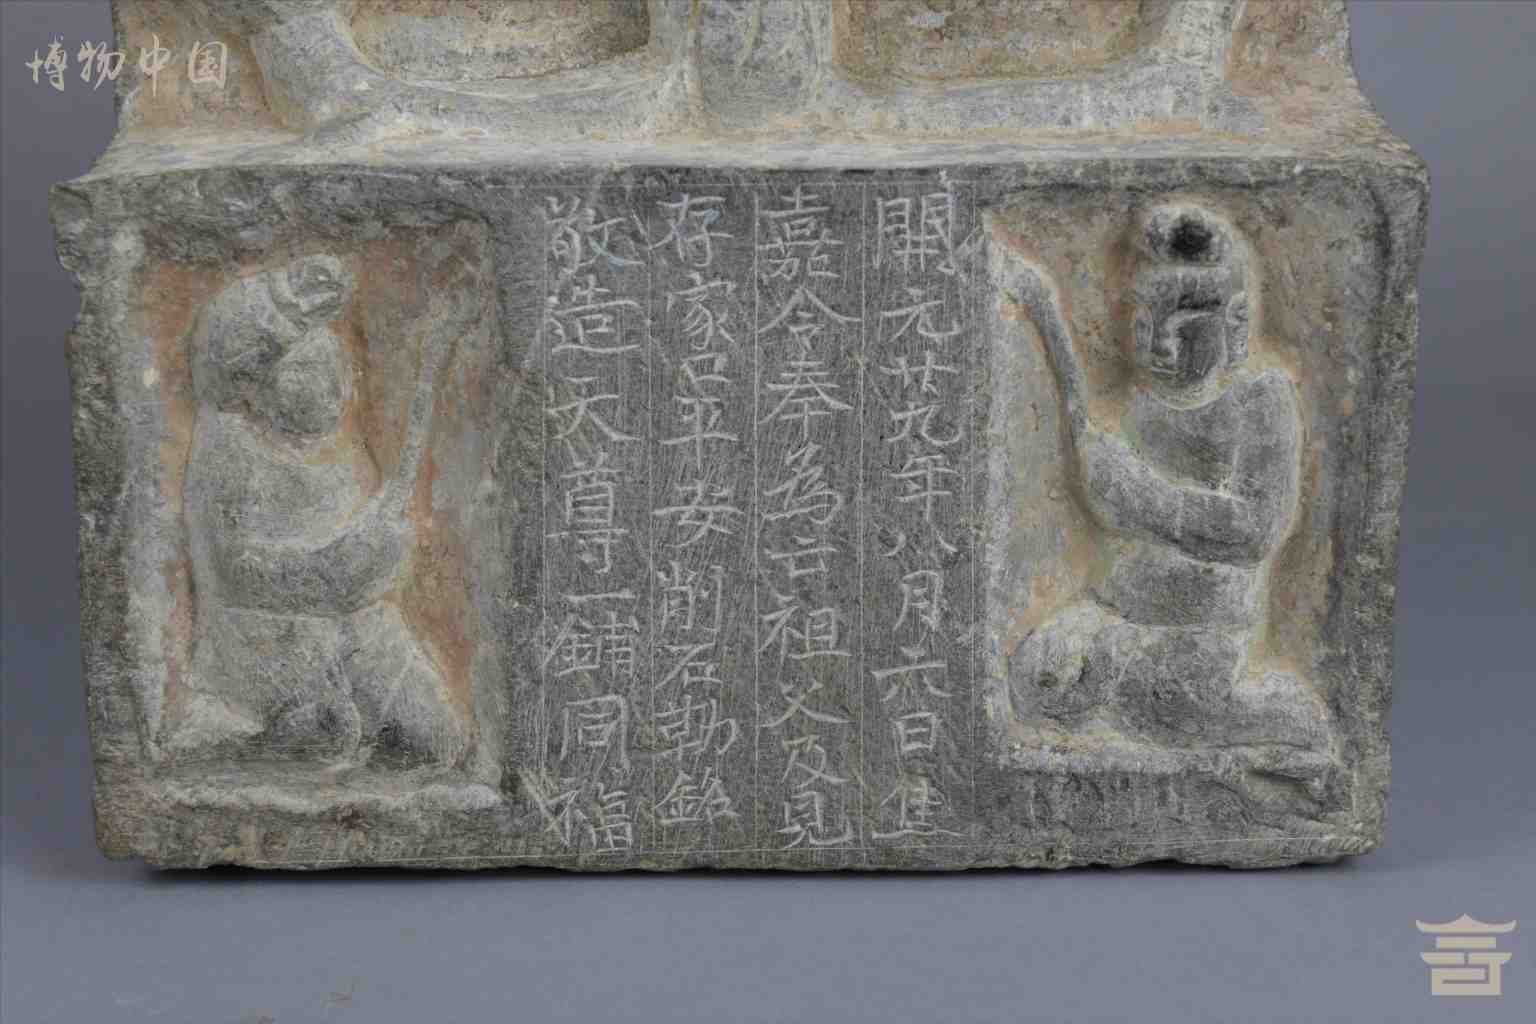 博物中国
開元廿九年八月六日隹
嘉令奉為亡祖父及見
存家口平安削石勒銘
敬造天尊一鋪同福